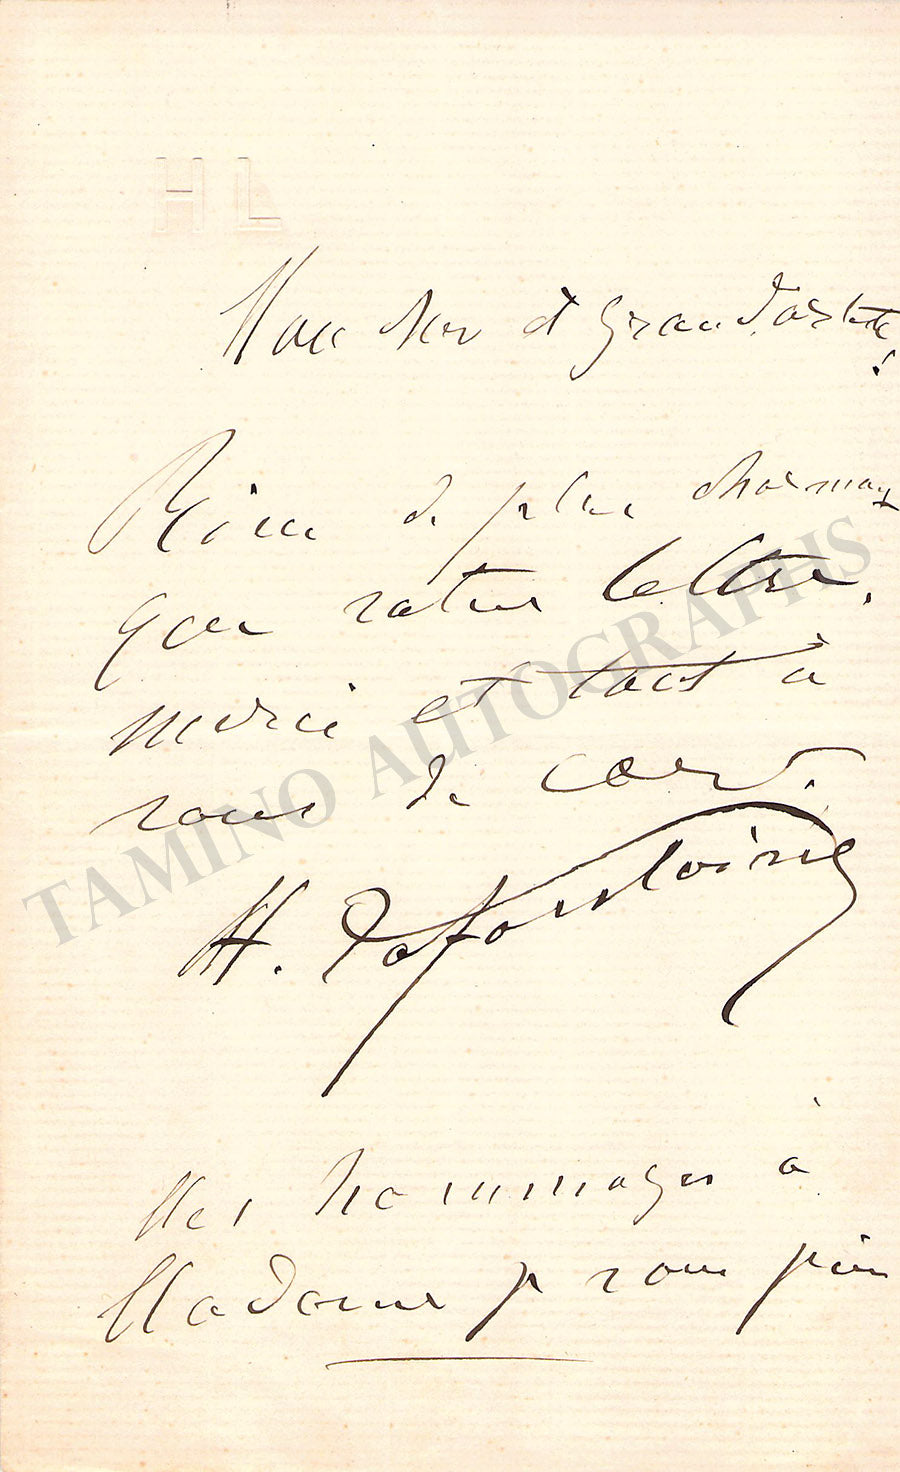 H L
Mon cher et grand artiste!
Rien de plus charmant
que votre lettre.
merci et tout à
vous de cœur.
H. Lafontaine
Mes hommages à
Madame je vous prie
TAMINO AUTOGRAPHS